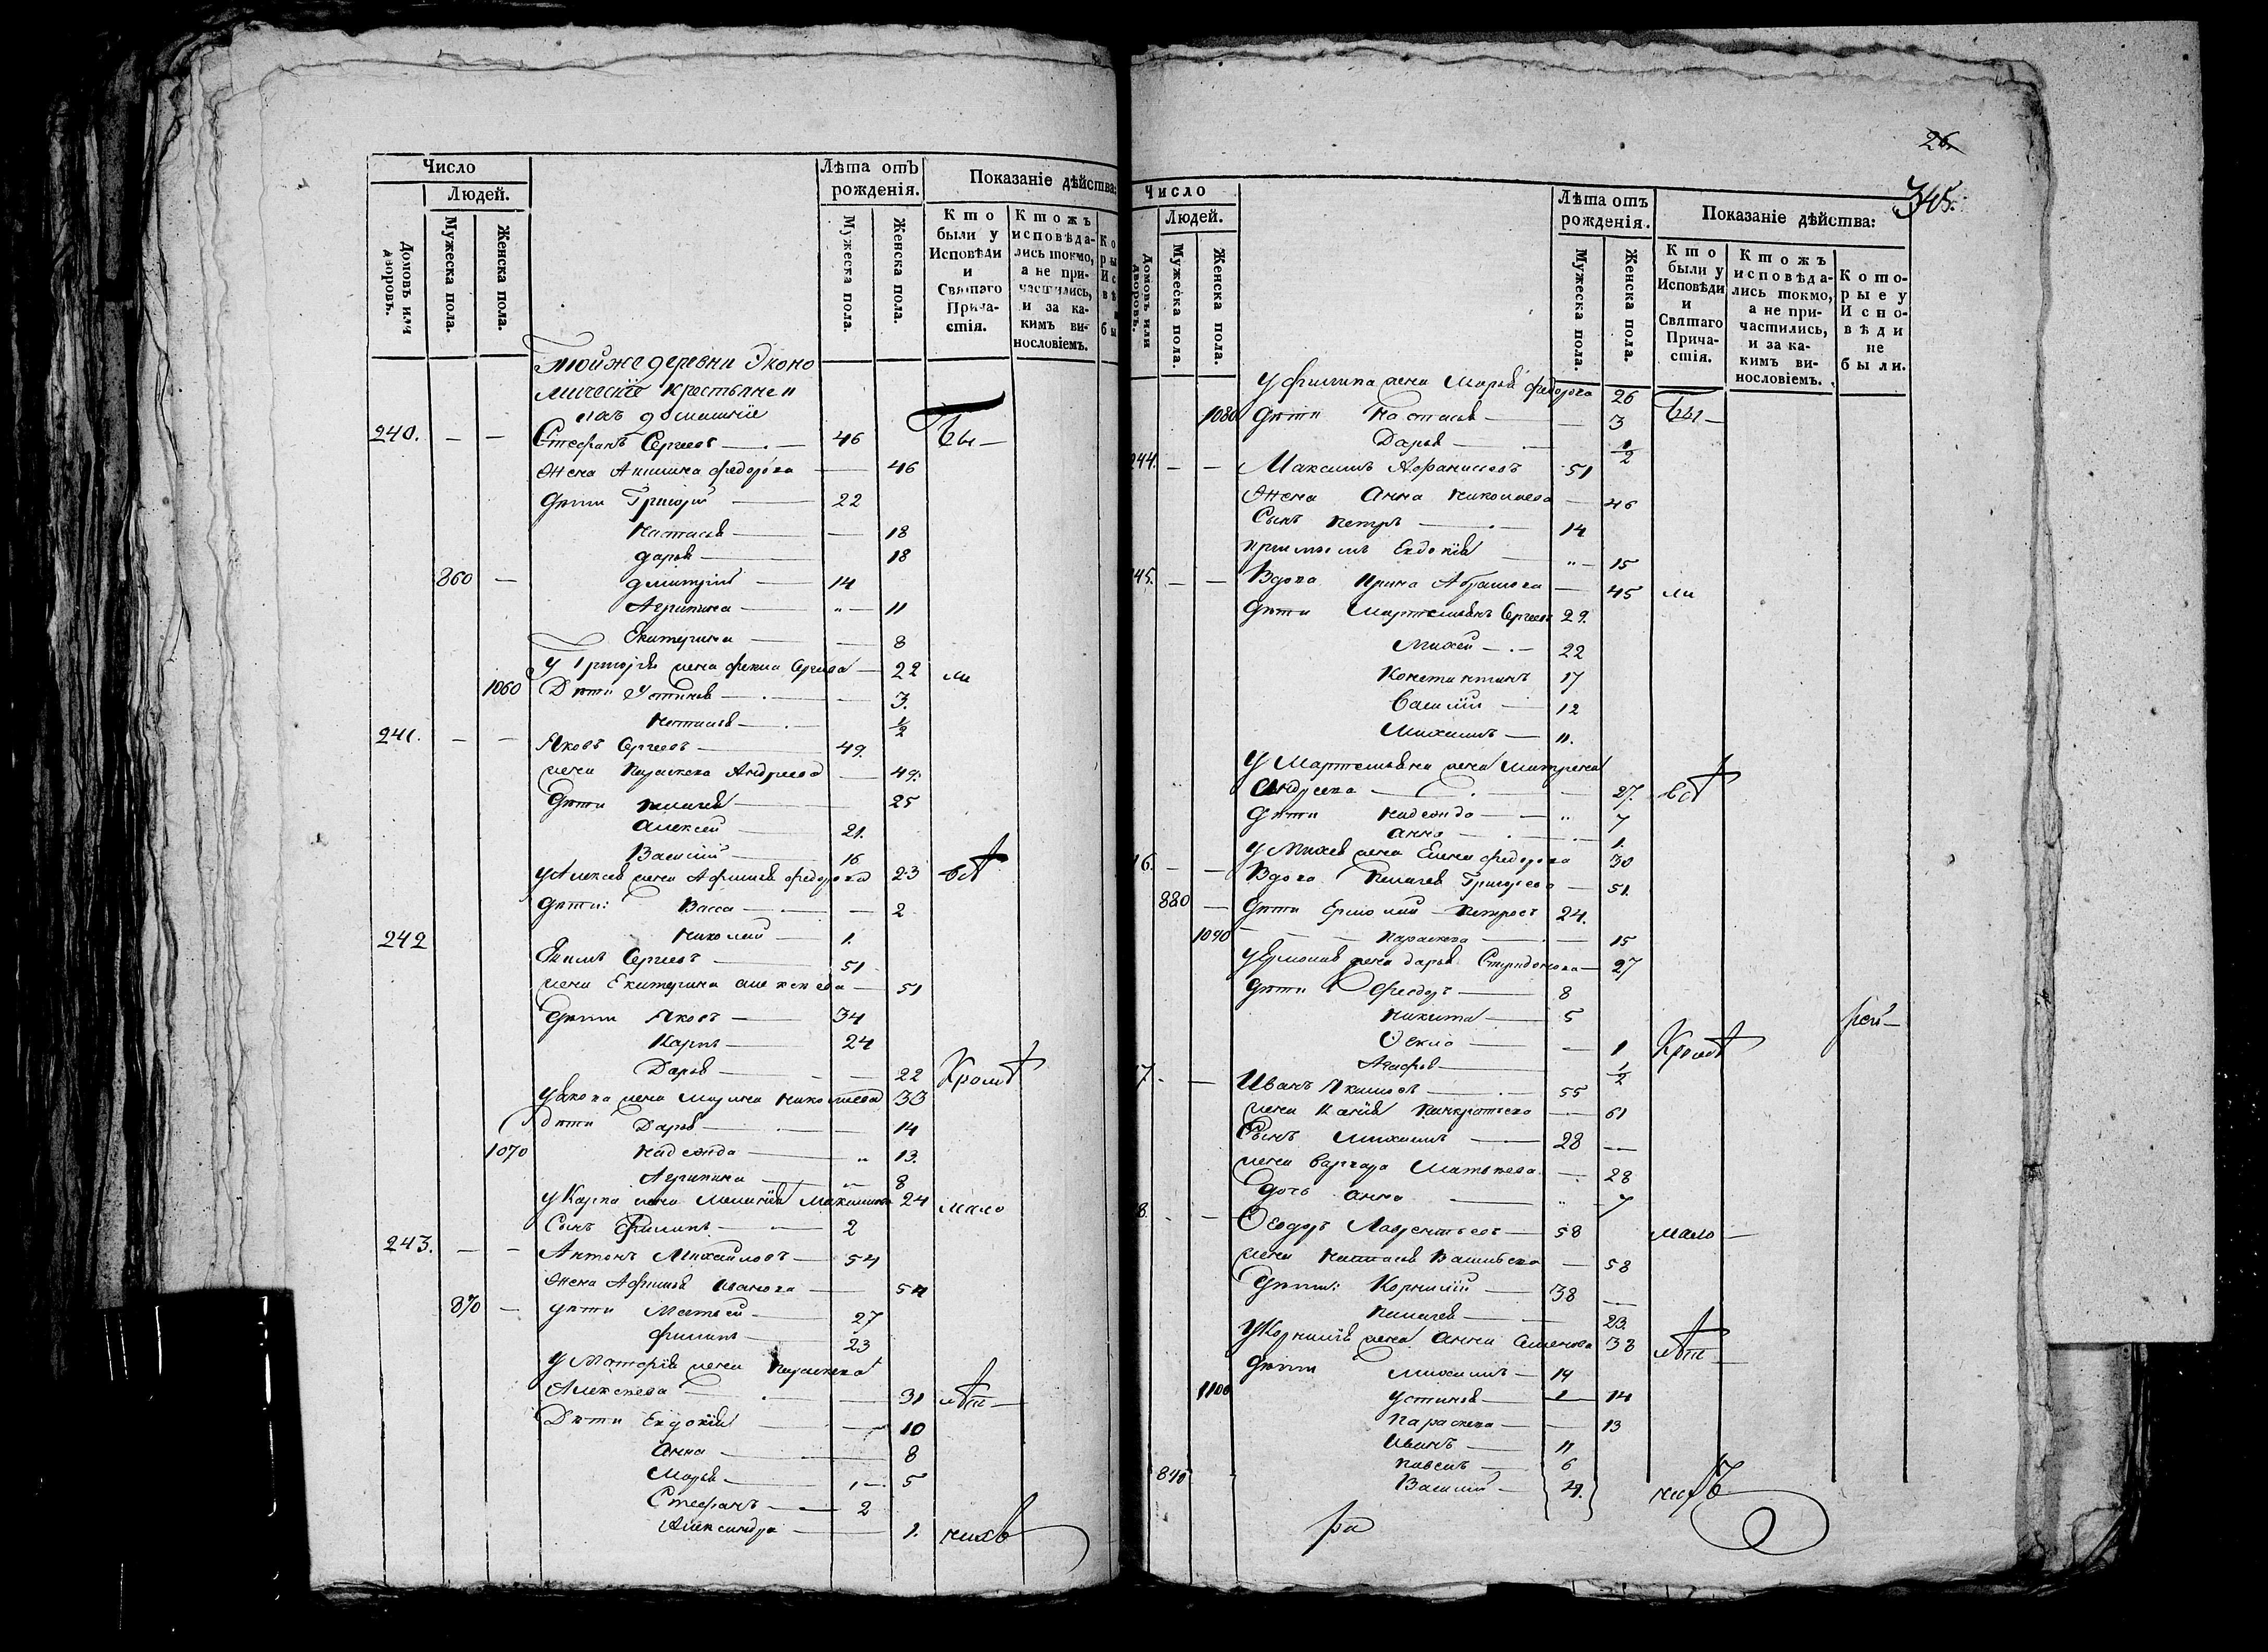 Число
Людей.
Домовъ или дворовъ.
Мужеска пола.
Женска пола.
Лѣта отъ рожденія.
Мужеска пола.
Женска пола.
Показаніе дѣйства:
Кто были у Исповѣди и Святаго Причастія.
Ктожъ исповѣдались токмо, а не причастились, и за какимъ винословіемъ.
Тойже деревни Эконо
мическіе крестьяне и
ихъ домашніе
240. — — Стефанъ Сергеевъ — 46 Бы—
Жена Акилина Федорова — 46
Дѣти Григорій — 22
Настасья — 18
Дарья — 18
860 — Дмитрій — 14
Агрипина — 11
Екатерина — 8
У Григорья жена Фекла — 22 ли
1060 Дѣти Устинья — 3.
Настасья — 1/2
241. — — Яковъ Сергеевъ — 49.
жена Параскева Андреева — 49.
Дѣти Пелагея — 25
Алексей — 21.
Василій — 16
У Алексея жена Афимья Федорова 23 всѣ
Дѣти: Васса — 2
Николай — 1.
242 Екимъ Сергеевъ — 51
жена Екатерина Алексеева — 51
Дѣти Яковъ — 34
Карпъ — 24
Дарья — 22 Кромѣ
У Якова жена Марина Николаева 33
Дѣти Дарья — 14
1070 Надежда — 13.
Агрипина — 8
У Карпа жена Меланья Максимова 24 мало
Сынъ Филипъ — 2
243. — — Антонъ Михайловъ — 54
Жена Афимья Иванова — 54
870 — Дѣти Матвей — 27
Филипъ — 23
У Матфея жена Параскева
Алексеева — 31 лѣт—
Дѣти Евдокія — 10
Анна — 8
Марья — 5
Стефанъ — 2
Александра — 1. нихъ
26.
345.
Число
Людей.
Домовъ или дворовъ.
Мужеска пола.
Женска пола.
Лѣта отъ рожденія.
Мужеска пола.
Женска пола.
Показаніе дѣйства:
Кто были у Исповѣди и Святаго Причастія.
Ктожъ исповѣдались токмо, а не причастились, и за какимъ винословіемъ.
Которые у Исповѣди не были.
У Филипа жена Марья Федорова 26 Бы—
1080 Дѣти Настасья — 3
Дарья — 1/2
244. — — Максимъ Афанасьевъ 51
Жена Анна Николаева — 46
Сынъ Петръ — 14
Евдокія — 15
45. — — Вдова Ирина Абрамова — 45 ли
Дѣти Мартемьянъ Сергеевъ 29.
Михей — 22
Константинъ 17
Василій — 12
Михаилъ — 11.
У Мартемьяна жена Матрена
Андреева — 27. всѣ
Дѣти Надежда — 7
Анна — 1.
У Михея жена Елена Федорова 30
6. — — Вдова Пелагея Григорьева — 51.
880 — Дѣти Ермолай Петровъ 24.
1090 — Параскева — 15
У Ермолая жена Дарья Спиридонова — 27
Дѣти Феодоръ — 8
Никита — 5 рей—
Фекла — 1 Кромѣ
Агафья — 1/2
7. — — Иванъ Якимовъ — 55
жена Ксенія Панкратьева — 61
Сынъ Михаилъ — 28
жена Варвара Матвеева — 28
Дочь Анна — 7
8. — — Феодоръ Лаврентьевъ — 58 мало—
жена Настасья Васильева — 58
Дѣти: Корнилій — 38
Пелагея — 23.
У Корнилія жена Анна Семенова 38 лѣт—
Дѣти Михаилъ — 19
1100 Устинья — 14
Параскева — 13
Иванъ — 11
Павелъ — 6
890 Василій — 4. нихъ
ра